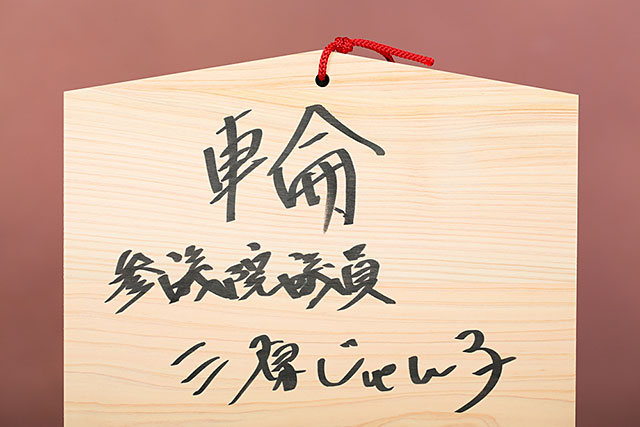 輪
参議院議員
三原じゅん子